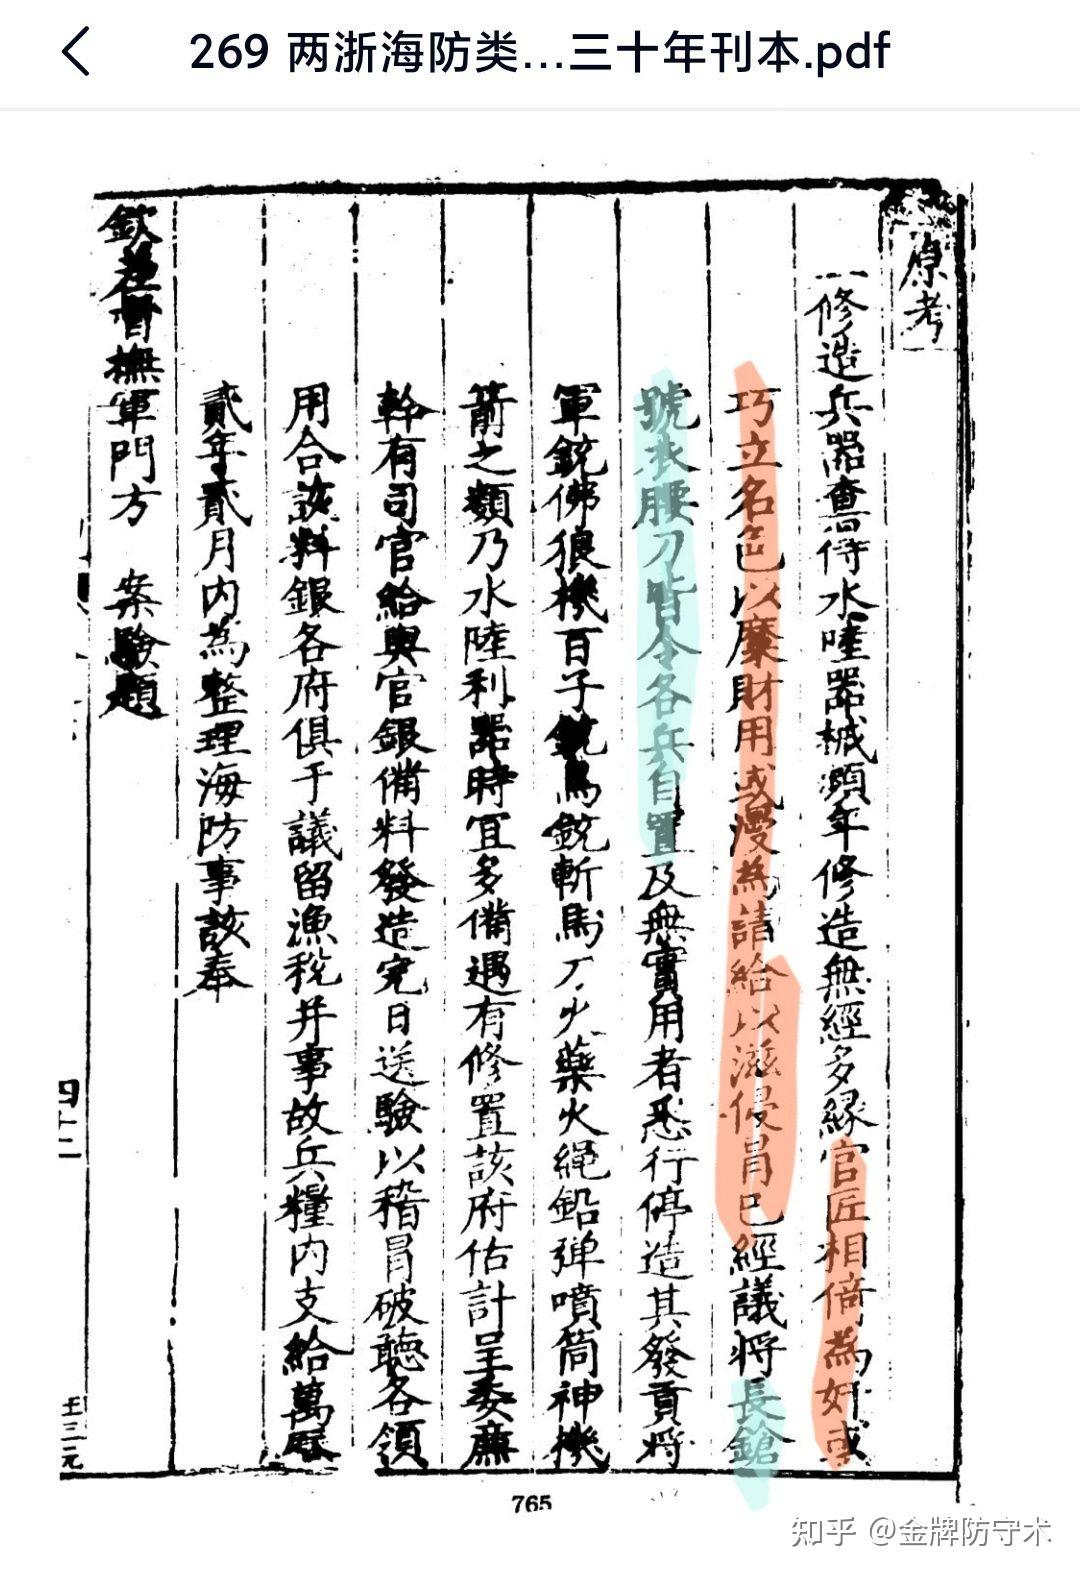 269 两浙海防类...三十年刊本.pdf
原考
一修造兵器舊侍水陸器械頻年修造無經多緣官匠相倚為奸或
巧立名色以糜財用或漫為請給以滋侵冒已經議將長鎗
號衣腰刀皆令各兵自置及無實用者悉行停造其發貢將
軍銃佛狼機百子銃鳥銃斬馬刀火藥火繩鉛弹噴筒神機
箭之類乃水陸利器時宜多備遇有修置該府估計呈委廉
幹有司官給與官銀備料發造完日送驗以稽冒破聽各領
用合該料銀各府俱于議留漁稅并事故兵糧内支給萬曆
貳年貳月内為整理海防事該奉
欽差督撫軍門方 案驗題
四十二
王三元
765
知乎 @金牌防守术